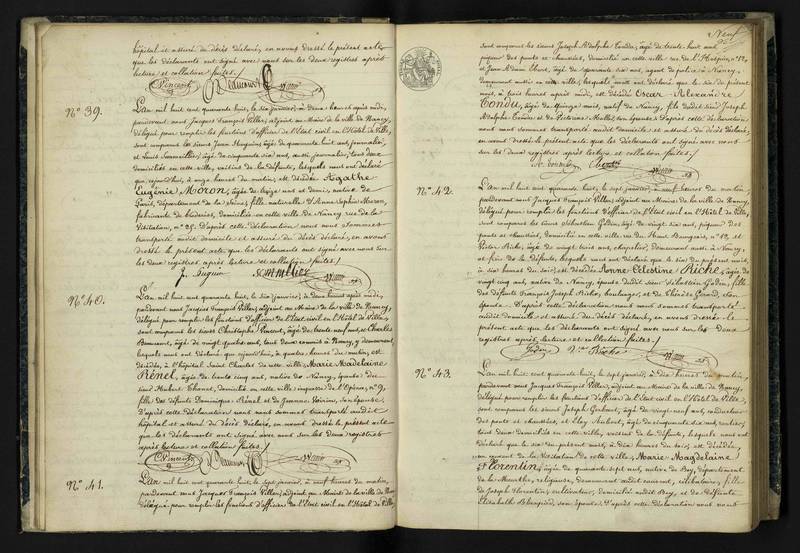 hôpital et assuré du décès déclaré, en avons dressé le présent acte
que les déclarants ont signé avec nous sur les deux registres après
lecture et collation faites./.
Vincent Beaucourt
N° 39.
L'an mil huit cent quarante huit, le six janvier, à deux heures après midi,
pardevant nous Jacques François Villers, adjoint au Maire de la ville de Nancy,
délégué pour remplir les fonctions d'officier de l'état civil en l'Hôtel de Ville,
sont comparus les sieurs Jean Huguin, âgé de quarante huit ans, journalier,
et Louis Sommellier, âgé de cinquante dix ans, aussi journalier, tous deux
domiciliés en cette ville, voisins de la défunte, lesquels nous ont déclaré
que cejourd'hui, à onze heures du matin, est décédée Agathe
Eugénie Moron, âgée de treize mois et demi, native de
Paris, département de la Seine, fille naturelle d'Anne Sophie Moron,
fabricante de broderies, domiciliée en cette ville de Nancy rue de la
Visitation, n° 25. D'après cette déclaration nous nous sommes
transporté audit domicile et assuré du décès déclaré, en avons
dressé le présent acte que les déclarants ont signé avec nous sur
les deux registres après lecture et collation faites./.
N° 40.
L'an mil huit cent quarante huit, le six janvier, à deux heures après midi,
pardevant nous Jacques François Villers, adjoint au Maire de la ville de Nancy,
délégué pour remplir les fonctions d'officier de l'État civil en l'Hôtel de Ville,
sont comparus les sieurs Christophe Vincent, âgé de trente neuf ans, et Charles
Beaucourt, âgé de vingt quatre ans, tous deux commis à Nancy, y demeurant,
lesquels nous ont déclaré que cejourd'hui, à quatre heures du matin, est
décédée, à l'hôpital Saint Charles de cette ville, Marie Madeleine
Rénel, âgée de trente cinq ans, native de Nancy, épouse du
sieur Hubert Chanot, domiciliée en cette ville, impasse de l'Opéra, n° 9,
fille des défunts Dominique Rénel et de Jeanne Poirine, son épouse.
D'après cette déclaration nous nous sommes transporté audit
hôpital et assuré du décès déclaré, en avons dressé le présent acte
que les déclarants ont signé avec nous sur les deux registres
après lecture et collation faites./.
C. Vincent Beaucourt
N° 41.
L'an mil huit cent quarante huit, le sept janvier, à neuf heures du matin,
pardevant nous Jacques François Villers, adjoint au Maire de la ville de Nancy,
délégué pour remplir les fonctions d'officier de l'État civil en l'Hôtel de Ville,
Neuf
sont comparus les sieurs Joseph Adolphe Condu, âgé de trente huit ans,
piqueur des ponts et chaussées, domicilié en cette ville rue de l'Hospice, n°
et Jean Adam Ebert, âgé de quarante six ans, agent de police à Nancy,
demeurant aussi en cette ville, lesquels nous ont déclaré que le six du présent
mois, à trois heures après midi, est décédé Oscar Alexandre
Condu, âgé de quinze mois, natif de Nancy, fils dudit sieur Joseph
Adolphe Condu et de Victorine son épouse. D'après cette déclaration
nous nous sommes transporté audit domicile et assuré du décès déclaré,
en avons dressé le présent acte que les déclarants ont signé avec nous
sur les deux registres après lecture et collation faites./.
N° 42.
L'an mil huit cent quarante huit, le sept janvier, à neuf heures du matin,
pardevant nous Jacques François Villers, adjoint au Maire de la ville de Nancy,
délégué pour remplir les fonctions d'officier de l'État civil en l'Hôtel de Ville,
sont comparus les sieurs Sébastien Godin, âgé de vingt six ans, piqueur des
ponts et chaussées, domicilié en cette ville rue du Haut Bourgeois, n° et
Victor Riche, âgé de vingt trois ans, chapelier, demeurant aussi à Nancy,
et frère de la défunte, lesquels nous ont déclaré que le six du présent mois,
à six heures du soir, est décédée Anne Célestine Riche, âgée de
vingt cinq ans, native de Nancy, épouse dudit sieur Sébastien Godin, fille
des défunts François Joseph Riche, boulanger, et de Thérèse Girard, son
épouse. D'après cette déclaration nous nous sommes transporté
audit domicile et assuré du décès déclaré, en avons dressé le
présent acte que les déclarants ont signé avec nous sur les deux
registres après lecture et collation faites./.
Godin Riche
N° 43.
L'an mil huit cent quarante huit, le sept janvier, à dix heures du matin,
pardevant nous Jacques François Villers, adjoint au Maire de la ville de Nancy,
délégué pour remplir les fonctions d'officier de l'État civil en l'Hôtel de Ville,
sont comparus les sieurs Joseph âgé de vingt neuf ans, conducteur
des ponts et chaussées, et Eloy Aubert, âgé de cinquante six ans, rentier,
tous deux domiciliés en cette ville, voisins de la défunte, lesquels nous ont
déclaré que le six du présent mois, à dix heures du soir, est décédée,
au couvent de la Visitation de cette ville, Marie Magdelaine
Florentin, âgée de quarante sept ans, native de Bey, département
de la Meurthe, religieuse, demeurant audit couvent, célibataire, fille
de Joseph Florentin, cultivateur, domicilié audit Bey, et de défunte
Elisabeth son épouse. D'après cette déclaration nous nous